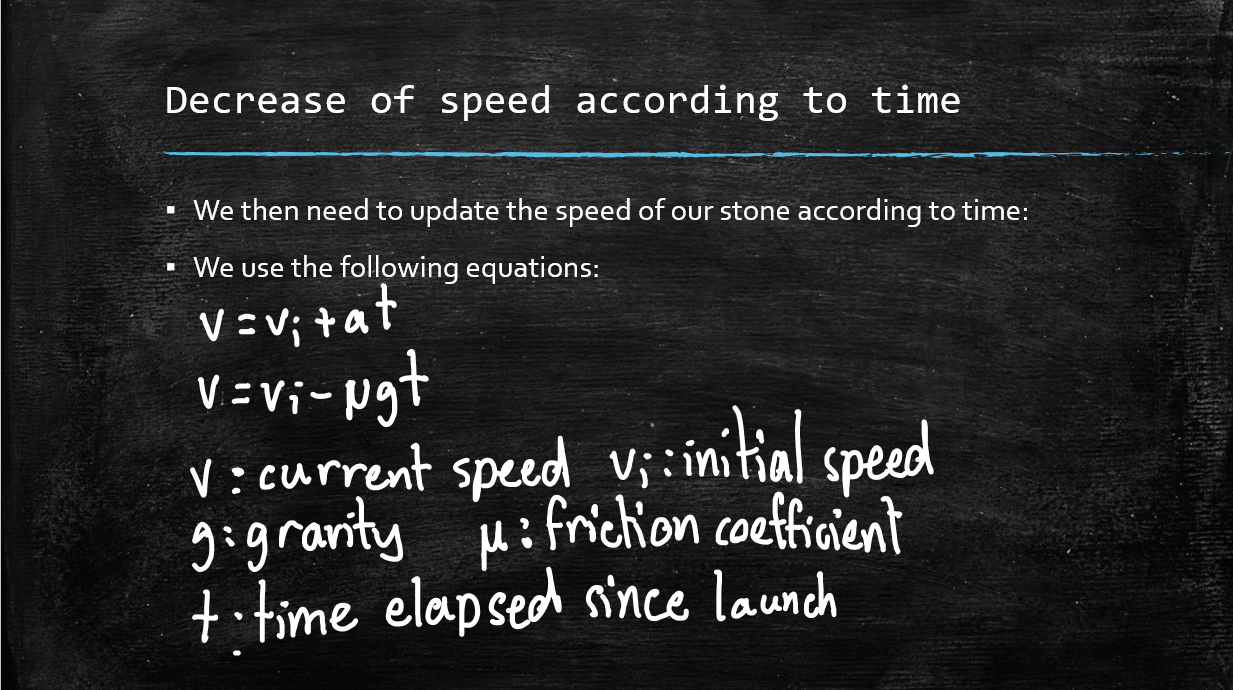 Decrease of speed according to time
▪ We then need to update the speed of our stone according to time:
▪ We use the following equations:
v = vᵢ + at
v = vᵢ - μgt
v : current speed vᵢ : initial speed
g : gravity μ : friction coefficient
t : time elapsed since launch